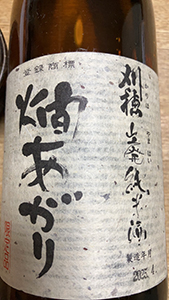 刈穂 山廃純米酒
かりほ やまはい
登録商標
燗あがり
製造年月
2005.4